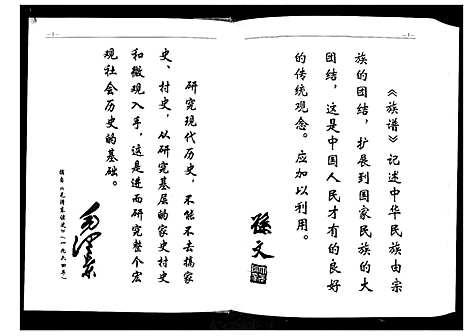 《族谱》记述中华民族由宗
族的团结，扩展到国家民族的大
团结，这是中国人民才有的良好
的传统观念。应加以利用。
孫文
研究现代历史，不能不去搞家
史、村史，从研究基层的家史村史
和微观入手，这是进而研究整个宏
观社会历史的基础。
毛澤东